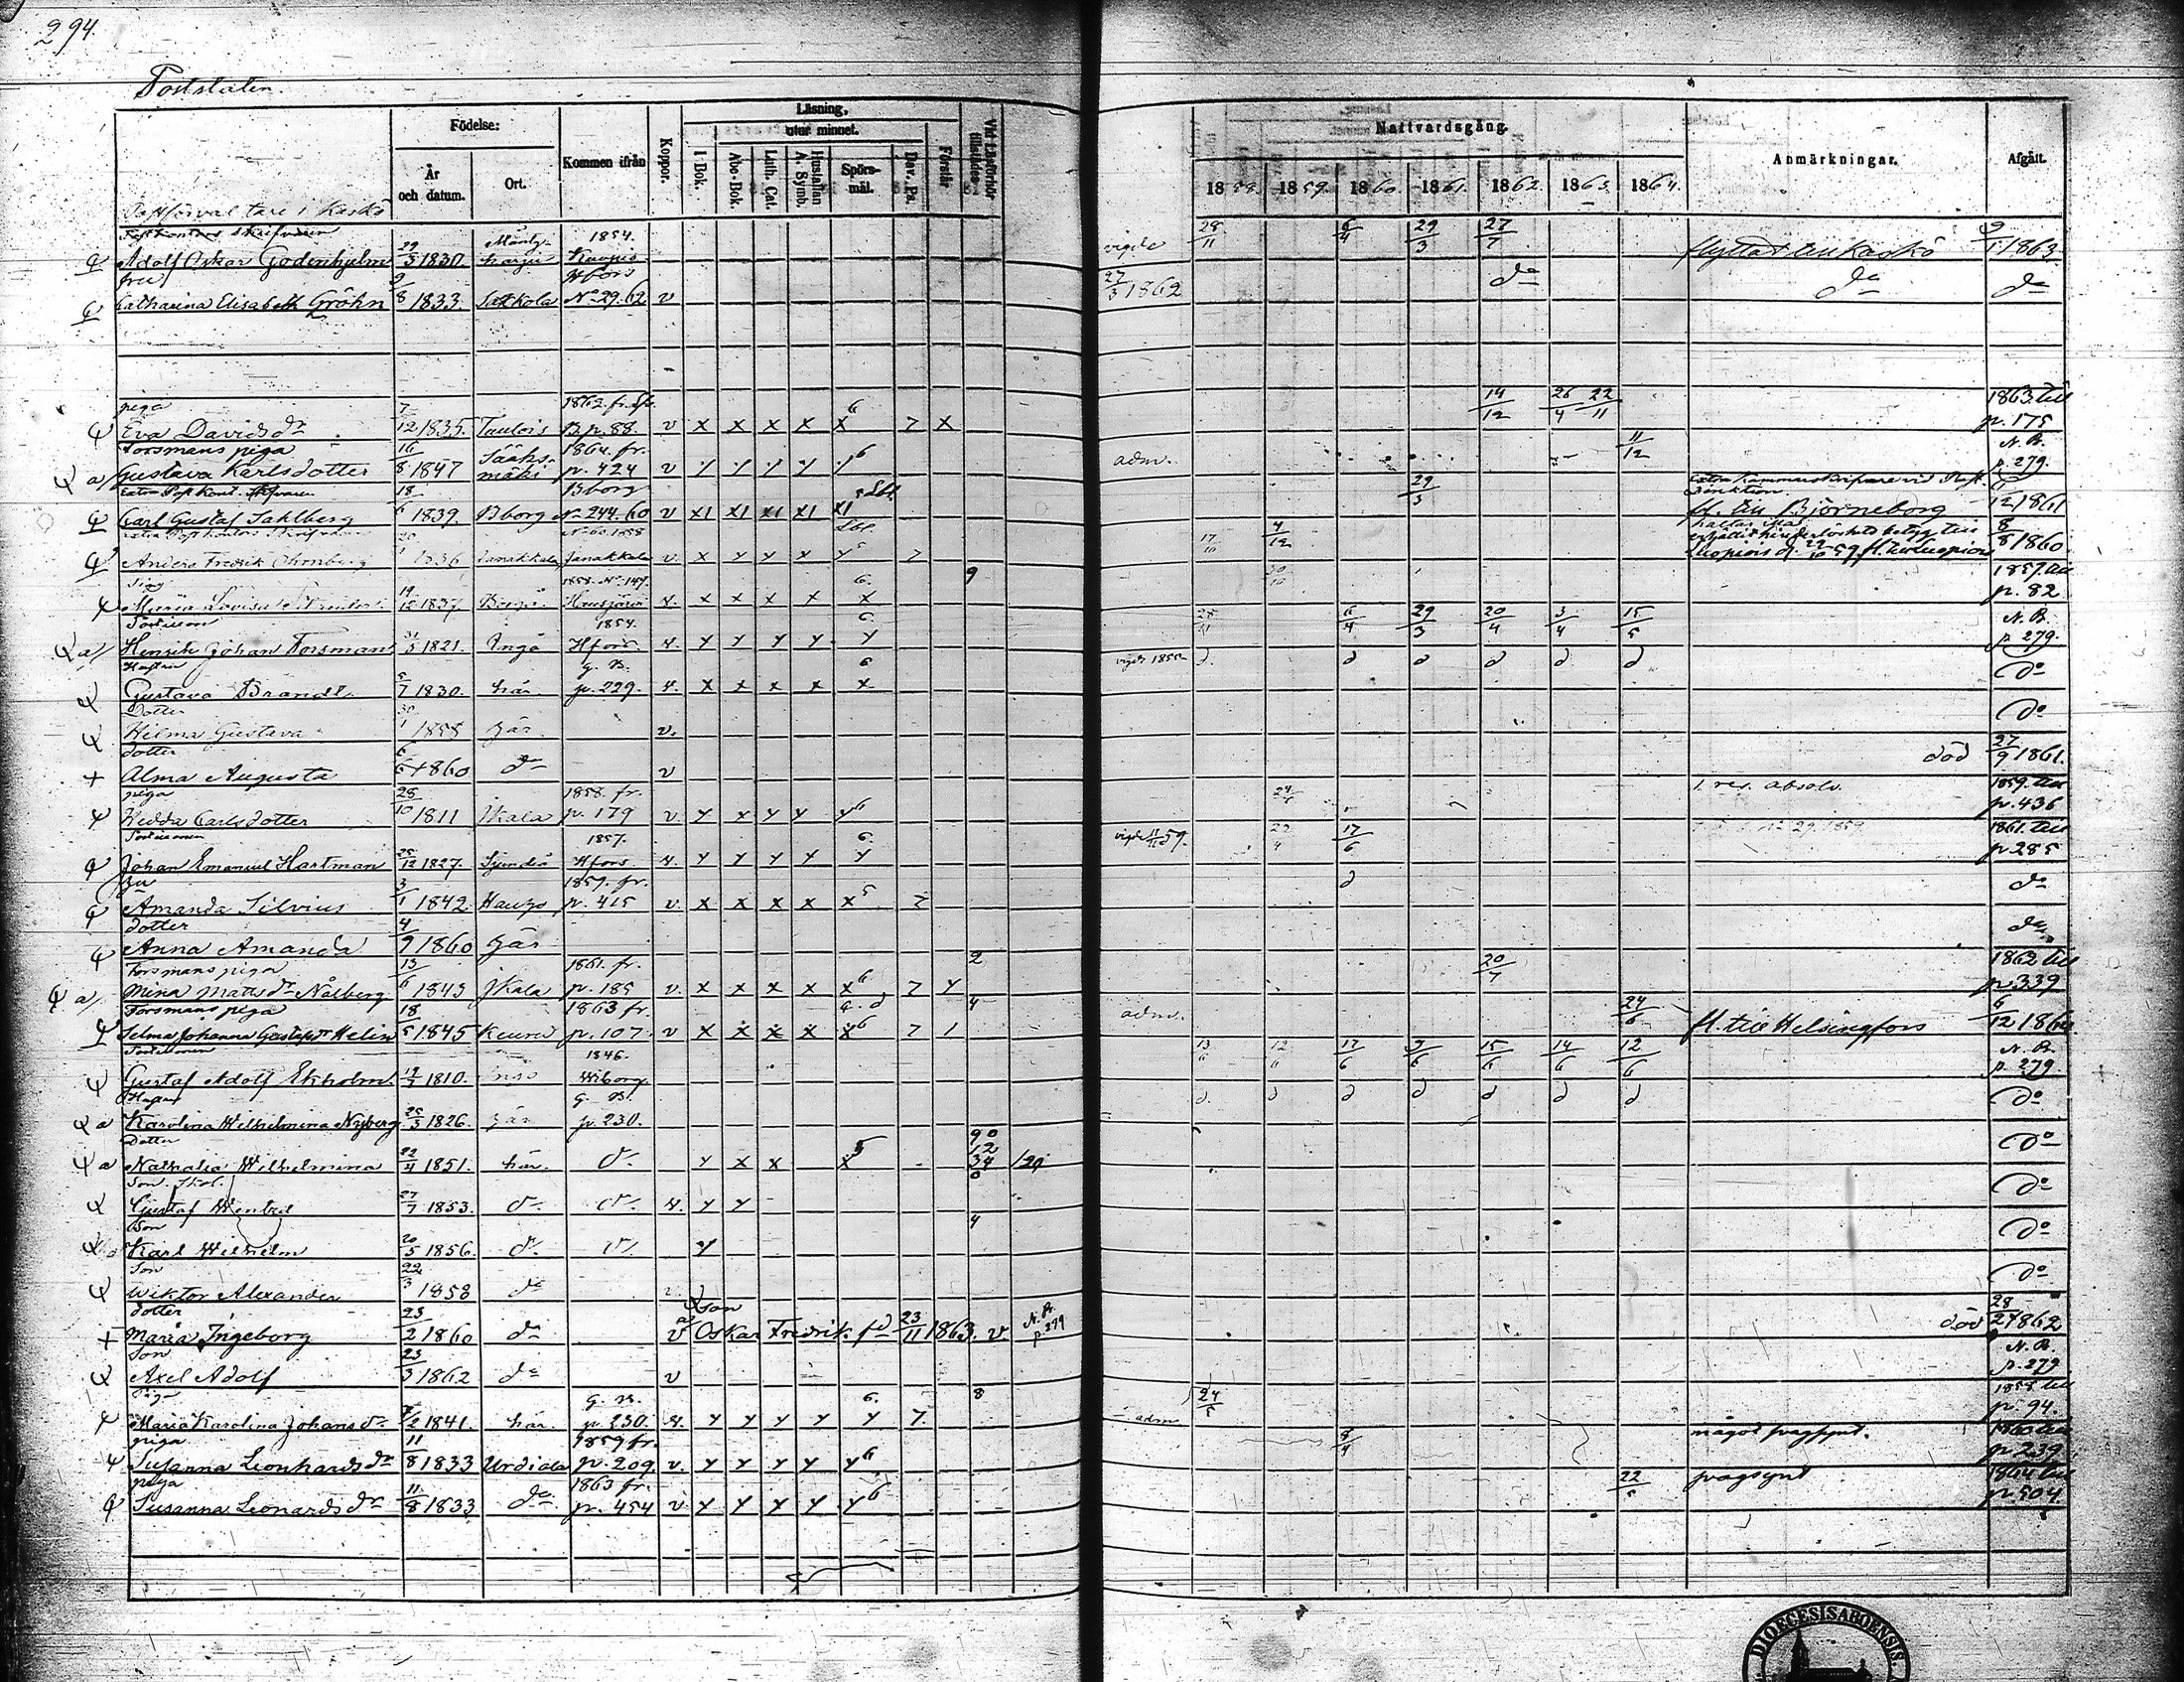 294.
Poststaten.
Födelse:
År och datum.
Ort.
Kommen ifrån
Koppor.
Läsning,
utur minnet.
I Bok.
Abc-Bok.
Luth. Cat.
Hustaflan A. Symb.
Spörsmål.
Dav. Ps.
Förstår
Vid Läsförhör tillstädes
Nattvardsgång.
1858. 1859. 1860. 1861. 1862. 1863. 1864.
Anmärkningar.
Afgått.
Postförvaltare i Kaskö
Adolf Oskar Godenhjelm 29/3 1830 1854. Kuopio vigde 28/11 6/4 29/3 27/7 flyttat till Kaskö 9/1 1863.
fru
Catharina Elisabeth Gröhn 9/8 1833. Sakkola Wborg No 29. 62 v 27/3 1862 do do do
piga
Eva Davidsdr 7/12 1835. Taulois 1862. fr. B. p. 88. v x x x x x 6 7 x 14/12 26/4 22/11 1863 till p. 175
Forsmans piga
Gustava Karlsdotter 16/8 1847 Sääksmäki 1864. fr. p. 424 v adm. 11/12 N. B. p. 279.
Extra Post Kont. Skrifvaren
Carl Gustaf Sahlberg 18/6 1839. Bborg Bborg No 244. 60 v x1 x1 x1 x1 x1 29/3 fl. till Björneborg 12 1861
Extra Post Kontors Skrifvaren
Anders Fredrik Ohrnberg 1836 Janakkala No 60. 1858 Janakkala v. x y y x y 5 7 17/10 4/12 8/8 1860
Piga
Maria Lovisa 19/12 1837. Borgå 1858. No 147. Hausjärvi v. x x x x x 6. 9 1859. till p. 82
Postiljon
Henrik Johan Forsman 31/5 1821. Ingå 1854. Hfors v. y y y y y 6 28/11 6/4 29/3 20/4 3/4 15/5 N. B. p 279.
Hustru
Gustava Brandt 5/7 1830. här G. B. p. 229. v. x x x x x 6 d d d d d d do
Dotter
Hilma Gustava 30/1 1858 här v. do
dotter
Alma Augusta 6/6 1860 do v död 27/9 1861.
piga
Hedda Carlsdotter 28/10 1811 Jkala 1858. fr. p. 179 v y x y y y 6 1. res. absolv. 1859. till p. 436
Postiljonen
Johan Emanuel Hartman 25/12 1827. Sjundeå 1857. Hfors v. y y y y y 6. vigde 11/11 59. 17/6 1861. till p 285
fru
Amanda Silvius 3/1 1842 Hauho 1859. fr. p. 415 v x x x x x 5 7 d do
dotter
Anna Amanda 4/9 1860 här do
Forsmans piga
Mina Mattsdr Nålberg 13/6 1843 Jkala 1861. fr. p. 185 v. x x x x x 6 7 y 2 20/7 1862 till p 339
Forsmans piga
Selma Johanna Gustafsdr Helin 18/5 1845 Keuru 1863 fr. p. 107. v x x x x x 6 7 1 4 adm. 24/6 fl. till Helsingfors 6/12 1864
Postiljonen
Gustaf Adolf Ekholm. 19/7 1810. 1846. Wiborg 13/6 12/6 17/6 9/6 15/6 14/6 12/6 N. B. p. 279.
Hustru
Karolina Wilhelmina Nyberg 25/5 1826. här G. B. p. 230. d. d d d d d d do
Dotter
Nathalia Wilhelmina 22/4 1851. här. do y x x x 5 do
Son. Skol.
Gustaf Wenbrel 27/7 1853. do do v. y y do
Son
Karl Wilhelm 20/5 1856. do do y 4 do
Son
Wiktor Alexander 22/3 1858 do do
dotter
Maria Ingeborg 23/2 1860 do v son Oskar Fredrik fd 23/11 1863. v N. B. p. 279 död 28/2 1862
Son
Axel Adolf 23/3 1862 do v N. B. p. 279
Piga
Maria Karolina Johansdr 7/2 1841. här. G. B. p. 230. v. y y y y y 6. 7. 8 adm 24/5 1858 till p. 94.
piga
Susanna Leonhardsdr 11/8 1833 Urdiala 1859 fr. p. 209. v. y y y y y 6 8/4 något svagsynt. 1860 till p. 239.
piga
Susanna Leonardsdr 11/8 1833 do 1863 fr. p. 454 v y y y y y 6 22/5 svagsynt 1864 till p. 504.
DIOECESIS ABOENSIS